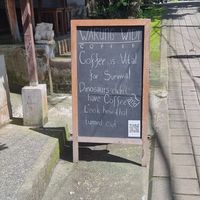 WARUNG WIDI
COFFEE
Coffee is Vital
for Survival
Dinosaurs didn't
have Coffee
Look how that
turned out